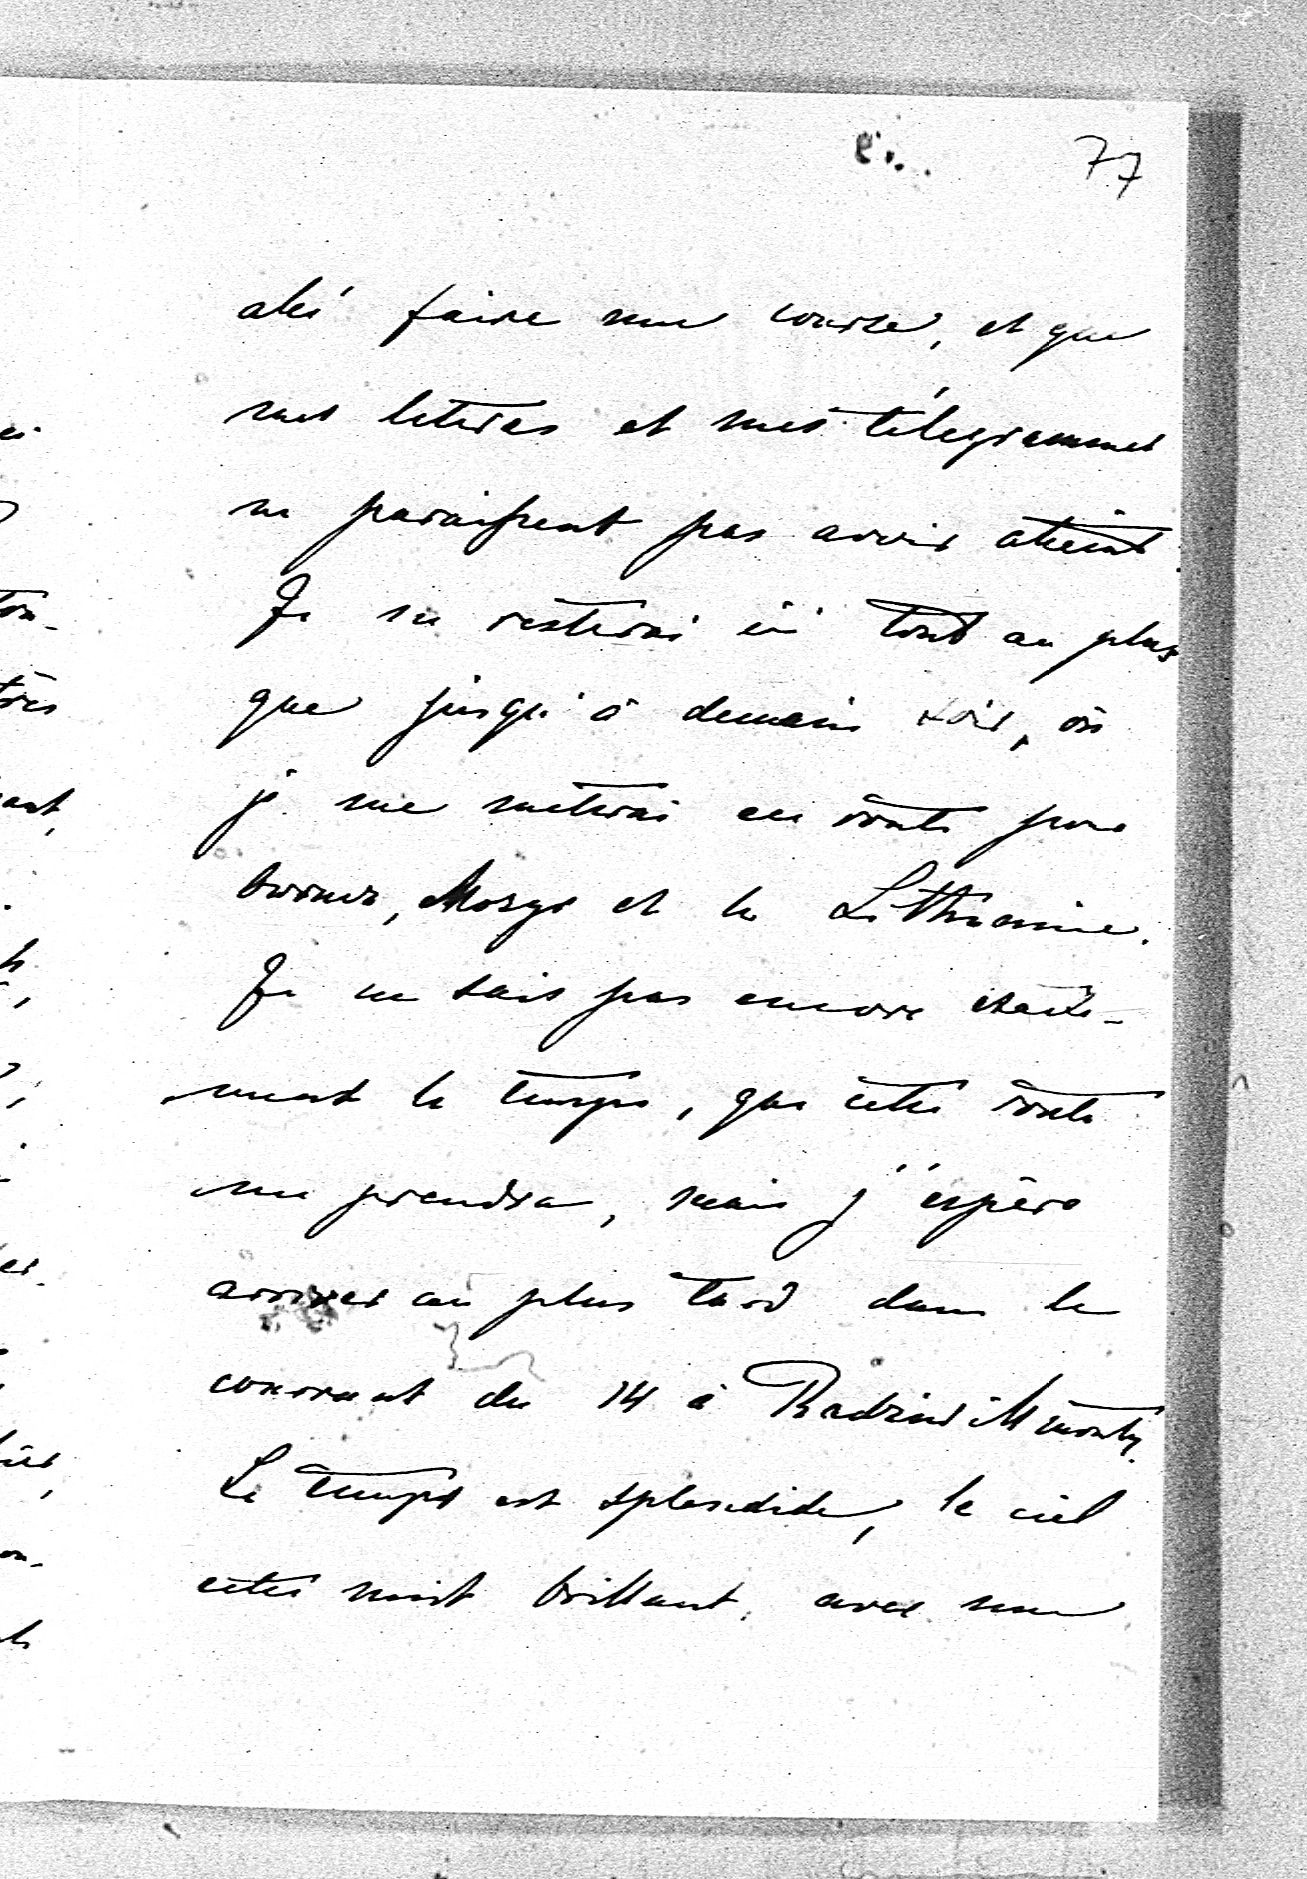 77
alé faire une course, et que
mes letres et mes télegrammes
ne paraissent pas avoir ateint.
Je ne resterai ici tout au plus
que jusqu'à demain soir, où
je me metrai en route pour
Mosyr et la Lithuanie.
Je ne sais pas encore exacte-
ment le temps, que cete route
me prendra, mais j'éspère
arriver au plus tard dans le
courrant du 14 à Radziwillmonty.
Le temps est splendide, le ciel
cete nuit brillant, avec une